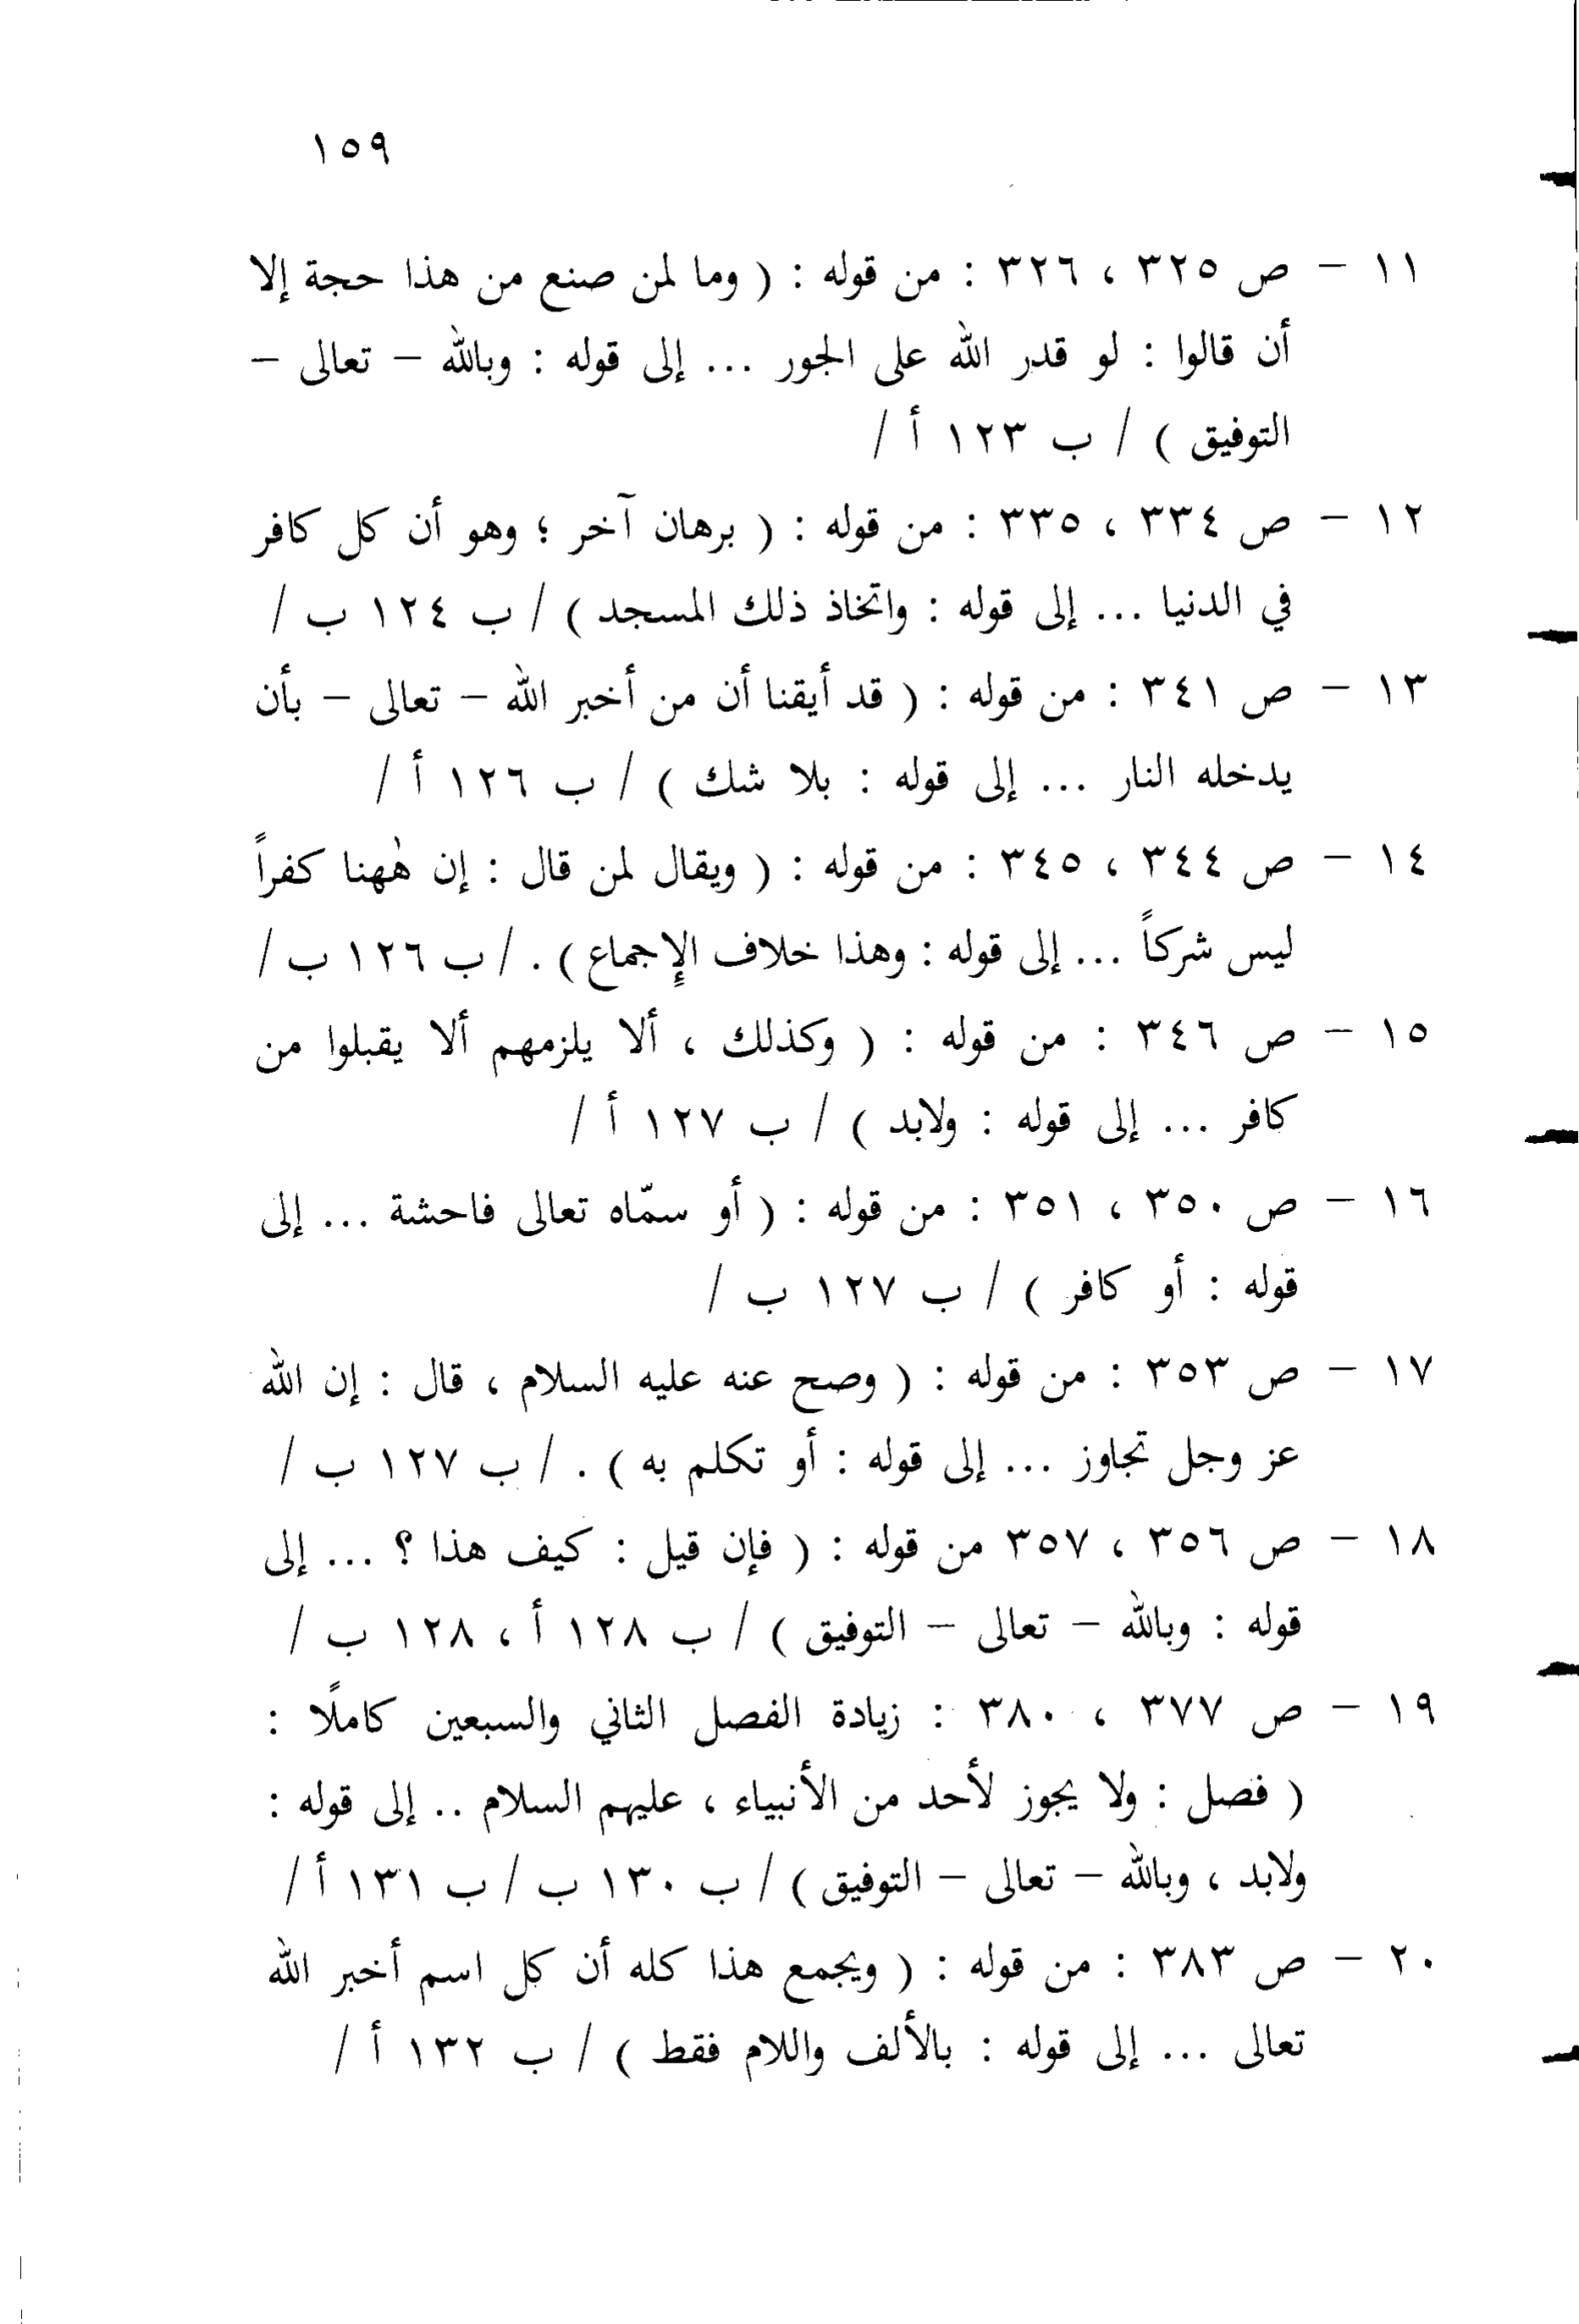 ١٥٩
١١ – ص ٣٢٥ ، ٣٢٦ : من قوله : ( وما لمن صنع من هذا حجة إلا
أن قالوا : لو قدر الله على الجور ... إلى قوله : وبالله – تعالى –
التوفيق ) / ب ١٢٣ أ /
١٢ – ص ٣٣٤ ، ٣٣٥ : من قوله : ( برهان آخر ؛ وهو أن كل كافر
في الدنيا ... إلى قوله : واتخاذ ذلك المسجد ) / ب ١٢٤ ب /
١٣ – ص ٣٤١ : من قوله : ( قد أيقنا أن من أخبر الله – تعالى – بأن
يدخله النار ... إلى قوله : بلا شك ) / ب ١٢٦ أ /
١٤ – ص ٣٤٤ ، ٣٤٥ : من قوله : ( ويقال لمن قال : إن هٰهنا كفراً
ليس شركاً ... إلى قوله : وهذا خلاف الإجماع ) . / ب ١٢٦ ب /
١٥ – ص ٣٤٦ : من قوله : ( وكذلك ، ألا يلزمهم ألا يقبلوا من
كافر ... إلى قوله : ولابد ) / ب ١٢٧ أ /
١٦ – ص ٣٥٠ ، ٣٥١ : من قوله : ( أو سمّاه تعالى فاحشة ... إلى
قوله : أو كافر ) / ب ١٢٧ ب /
١٧ – ص ٣٥٣ : من قوله : ( وصح عنه عليه السلام ، قال : إن الله
عز وجل تجاوز ... إلى قوله : أو تكلم به ) . / ب ١٢٧ ب /
١٨ – ص ٣٥٦ ، ٣٥٧ من قوله : ( فإن قيل : كيف هذا ؟ ... إلى
قوله : وبالله – تعالى – التوفيق ) / ب ١٢٨ أ ، ١٢٨ ب /
١٩ – ص ٣٧٧ ، ٣٨٠ : زيادة الفصل الثاني والسبعين كاملًا :
( فصل : ولا يجوز لأحد من الأنبياء ، عليهم السلام .. إلى قوله :
ولابد ، وبالله – تعالى – التوفيق ) / ب ١٣٠ ب / ب ١٣١ أ /
٢٠ – ص ٣٨٣ : من قوله : ( ويجمع هذا كله أن كل اسم أخبر الله
تعالى ... إلى قوله : بالألف واللام فقط ) / ب ١٣٢ أ /